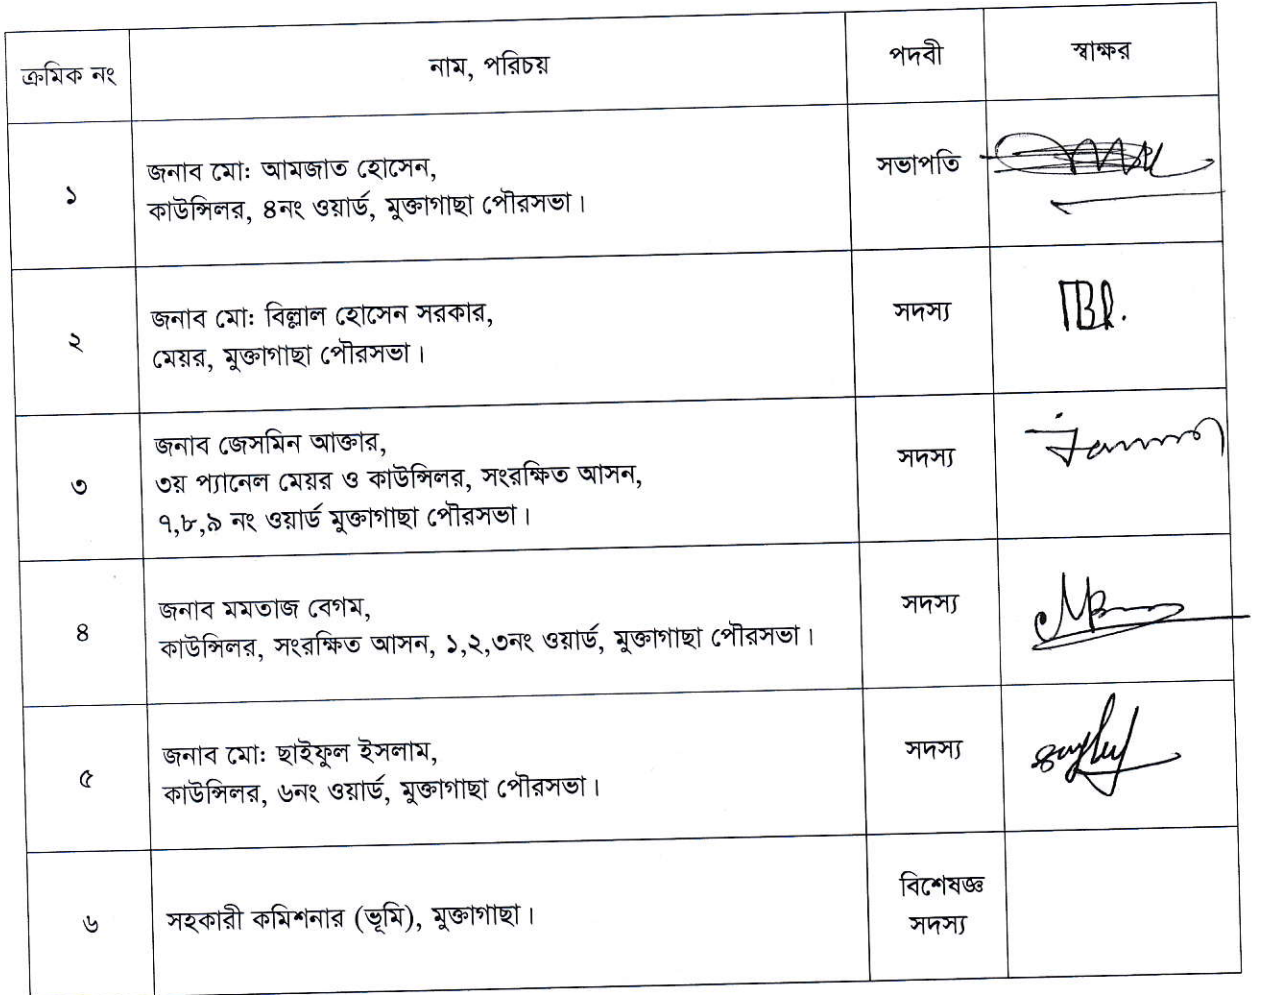 ক্রমিক নং নাম, পরিচয় পদবী স্বাক্ষর
১ জনাব মো: আমজাত হোসেন, সভাপতি
কাউন্সিলর, ৪নং ওয়ার্ড, মুক্তাগাছা পৌরসভা।
২ জনাব মো: বিল্লাল হোসেন সরকার, সদস্য
মেয়র, মুক্তাগাছা পৌরসভা।
৩ জনাব জেসমিন আক্তার, সদস্য
৩য় প্যানেল মেয়র ও কাউন্সিলর, সংরক্ষিত আসন,
৭,৮,৯ নং ওয়ার্ড মুক্তাগাছা পৌরসভা।
৪ জনাব মমতাজ বেগম, সদস্য
কাউন্সিলর, সংরক্ষিত আসন, ১,২,৩নং ওয়ার্ড, মুক্তাগাছা পৌরসভা।
৫ জনাব মো: ছাইফুল ইসলাম, সদস্য
কাউন্সিলর, ৬নং ওয়ার্ড, মুক্তাগাছা পৌরসভা।
৬ সহকারী কমিশনার (ভূমি), মুক্তাগাছা। বিশেষজ্ঞ
সদস্য